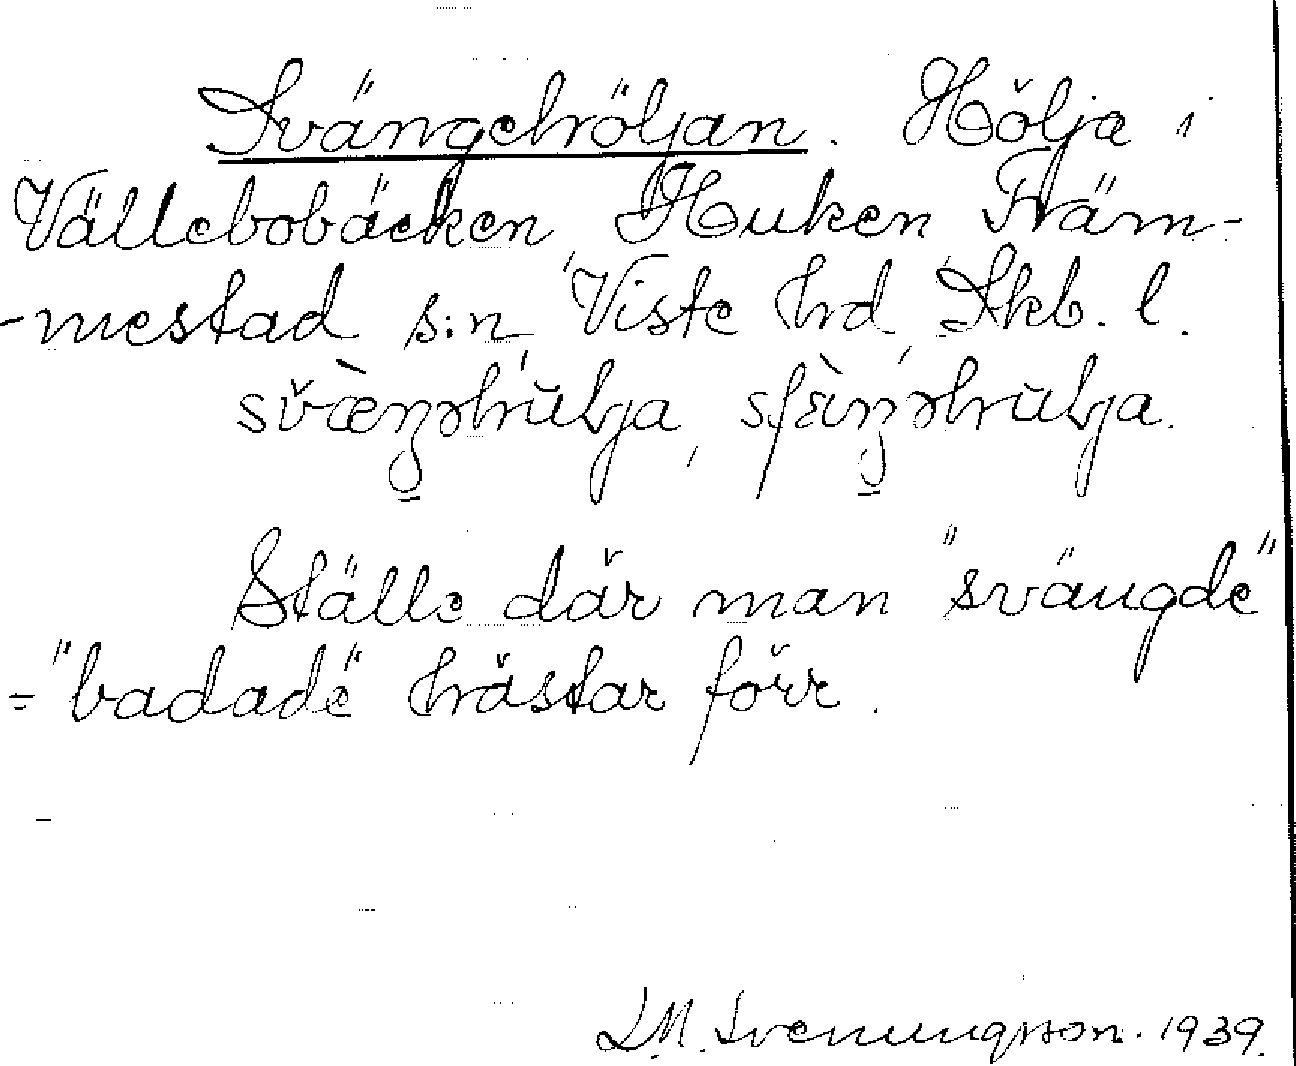 Svängehöljan. Hölja i
Vällebobäcken, Huken, Främ-
-mestad s:n, Viste hd, Skb. l.
Ställe där man "svängde"
="badade" hästar förr.
L.M. Svenungsson. 1939.